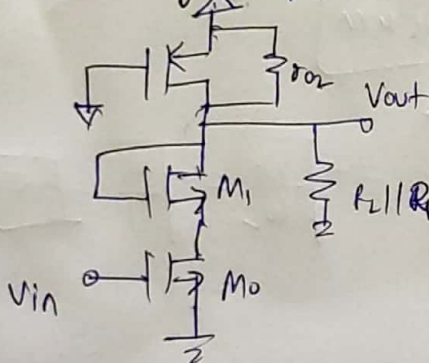 r02
Vout
M1
RL||R
Vin
M0